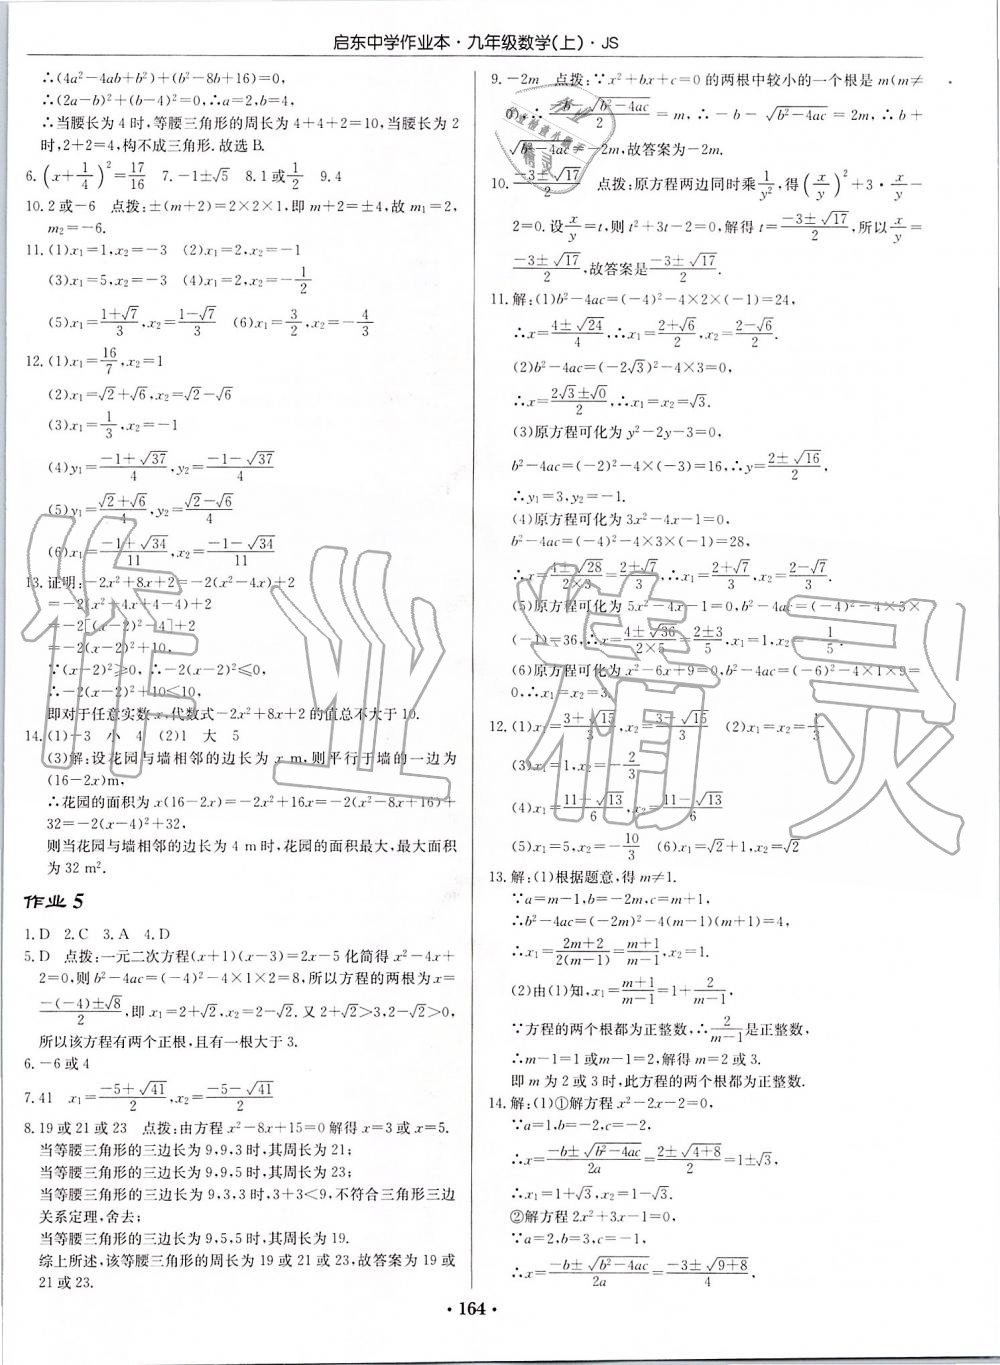 启东中学作业本·九年级数学(上)·JS
∴(4a²－4ab＋b²)＋(b²－8b＋16)＝0,
∴(2a－b)²＋(b－4)²＝0,∴a＝2,b＝4,
∴当腰长为4时,等腰三角形的周长为4＋4＋2＝10,当腰长为2
时,2＋2＝4,构不成三角形.故选B.
6.(x＋1/4)²＝17/16　7.－1±√5　8.1或1/2　9.4
10.2或－6　点拨:±(m＋2)＝2×2×1,即m＋2＝±4,故m₁＝2,
m₂＝－6.
11.(1)x₁＝1,x₂＝－3　(2)x₁＝2,x₂＝－1
(3)x₁＝5,x₂＝－3　(4)x₁＝2,x₂＝－1/2
(5)x₁＝(1＋√7)/3,x₂＝(1－√7)/3　(6)x₁＝3/2,x₂＝－4/3
12.(1)x₁＝16/7,x₂＝1
(2)x₁＝√2＋√6,x₂＝√2－√6
(3)x₁＝1/3,x₂＝－1
(4)y₁＝(－1＋√37)/4,y₂＝(－1－√37)/4
(5)y₁＝(√2＋√6)/4,y₂＝(√2－√6)/4
(6)x₁＝(－1＋√34)/11,x₂＝(－1－√34)/11
13.证明:－2x²＋8x＋2＝－2(x²－4x)＋2
＝－2(x²＋4x＋4－4)＋2
＝－2[(x－2)²－4]＋2
＝－2(x－2)²＋10.
∵(x－2)²≥0,∴－2(x－2)²≤0,
∴－2(x－2)²＋10≤10,
即对于任意实数x,代数式－2x²＋8x＋2的值总不大于10.
14.(1)－3　小　4　(2)1　大　5
(3)解:设花园与墙相邻的边长为x m,则平行于墙的一边为
(16－2x)m,
∴花园的面积为x(16－2x)＝－2x²＋16x＝－2(x²－8x＋16)＋
32＝－2(x－4)²＋32,
则当花园与墙相邻的边长为4 m时,花园的面积最大,最大面积
为32 m².
作业5
1.D　2.C　3.A　4.D
5.D　点拨:一元二次方程(x＋1)(x－3)＝2x－5化简得x²－4x＋
2＝0,则b²－4ac＝(－4)²－4×1×2＝8,所以方程的两根为x＝
(－(－4)±√8)/2,即x₁＝2＋√2,x₂＝2－√2.又2＋√2＞3,2－√2＞0,
所以该方程有两个正根,且有一根大于3.
6.－6或4
7.41　x₁＝(－5＋√41)/2,x₂＝(－5－√41)/2
8.19或21或23　点拨:由方程x²－8x＋15＝0解得x＝3或x＝5.
当等腰三角形的三边长为9,9,3时,其周长为21;
当等腰三角形的三边长为9,9,5时,其周长为23;
当等腰三角形的三边长为9,3,3时,3＋3＜9,不符合三角形三边
关系定理,舍去;
当等腰三角形的三边长为9,5,5时,其周长为19.
综上所述,该等腰三角形的周长为19或21或23,故答案为19或
21或23.
9.－2m　点拨:∵x²＋bx＋c＝0的两根中较小的一个根是m(m≠
0),∴(－b－√(b²－4ac))/2＝m,∴－b－√(b²－4ac)＝2m,∴b＋
√(b²－4ac)＝－2m,故答案为－2m.
10.(－3±√17)/2　点拨:原方程两边同时乘1/y²,得(x/y)²＋3·x/y－
2＝0.设x/y＝t,则t²＋3t－2＝0,解得t＝(－3±√17)/2,所以x/y＝
(－3±√17)/2,故答案是(－3±√17)/2.
11.解:(1)b²－4ac＝(－4)²－4×2×(－1)＝24,
∴x＝(4±√24)/4,∴x₁＝(2＋√6)/2,x₂＝(2－√6)/2.
(2)b²－4ac＝(－2√3)²－4×3＝0,
∴x＝(2√3±√0)/2,∴x₁＝x₂＝√3.
(3)原方程可化为y²－2y－3＝0,
b²－4ac＝(－2)²－4×(－3)＝16,∴y＝(2±√16)/2,
∴y₁＝3,y₂＝－1.
(4)原方程可化为3x²－4x－1＝0,
b²－4ac＝(－4)²－4×3×(－1)＝28,
∴x＝(4±√28)/(2×3)＝(2±√7)/3,∴x₁＝(2＋√7)/3,x₂＝(2－√7)/3.
(5)原方程可化为5x²－4x－1＝0,b²－4ac＝(－4)²－4×5×
(－1)＝36,∴x＝(4±√36)/(2×5)＝(2±3)/5,x₁＝1,x₂＝－1/5.
(6)原方程可化为x²－6x＋9＝0,b²－4ac＝(－6)²－4×1×9＝
0,∴x₁＝x₂＝3.
12.(1)x₁＝(3＋√15)/3,x₂＝(3－√15)/3　(2)x₁＝x₂＝1/3
(3)x₁＝1,x₂＝－2/3
(4)x₁＝(11＋√13)/6,x₂＝(11－√13)/6
(5)x₁＝5,x₂＝－10/3　(6)x₁＝√2＋1,x₂＝√2
13.解:(1)根据题意,得m≠1.
∵a＝m－1,b＝－2m,c＝m＋1,
∴b²－4ac＝(－2m)²－4(m－1)(m＋1)＝4,
∴x₁＝(2m＋2)/(2(m－1))＝(m＋1)/(m－1),x₂＝1.
(2)由(1)知,x₁＝(m＋1)/(m－1)＝1＋2/(m－1),
∵方程的两个根都为正整数,∴2/(m－1)是正整数,
∴m－1＝1或m－1＝2,解得m＝2或3.
即m为2或3时,此方程的两个根都为正整数.
14.解:(1)①解方程x²－2x－2＝0,
∵a＝1,b＝－2,c＝－2,
∴x＝(－b±√(b²－4ac))/2a＝(2±√(4＋8))/2＝1±√3,
∴x₁＝1＋√3,x₂＝1－√3.
②解方程2x²＋3x－1＝0,
∵a＝2,b＝3,c＝－1,
∴x＝(－b±√(b²－4ac))/2a＝(－3±√(9＋8))/4,
·164·
作业精灵